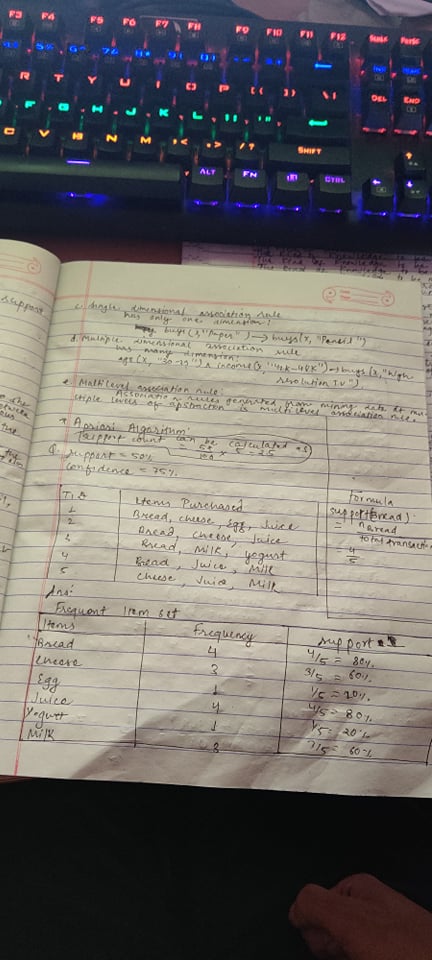 F3 F4 F5 F6 F7 F8 F9 F10 F11 F12
R T Y U I O P [ { ] } \ |
DEL END
F G H J K L
C V B N M , < . > / ? SHIFT
ALT FN CTRL
support
c. Single dimensional association rule
has only one dimension!
buys (x, "Paper") → buys (x, "Pencil")
d. Multiple dimensional association rule
has many dimension:
age (x, "30-39") ∧ income (x, "42k-48k") → buys (x, "high
resolution TV")
e. Multilevel association rule:
Association rules generated from mining data at mu-
ltiple levels of abstraction is multilevel association rule.
* Apriori Algorithm:
support count can be calculated as
= 50/100 × 5 = 2.5
Q. support = 50%
confidence = 75%
Formula
support (Bread)
= n Bread
total transactio
= 4/5
TID Items Purchased
1 Bread, cheese, Egg, Juice
2 Bread, Cheese, Juice
3 Bread, Milk, Yogurt
4 Bread, Juice, Milk
5 Cheese, Juice, Milk
Ans:
Frequent Item set
Items Frequency support
Bread 4 4/5 = 80%
Cheese 3 3/5 = 60%
Egg 1 1/5 = 20%
Juice 4 4/5 = 80%
Yogurt 1 1/5 = 20%
Milk 3 3/5 = 60%